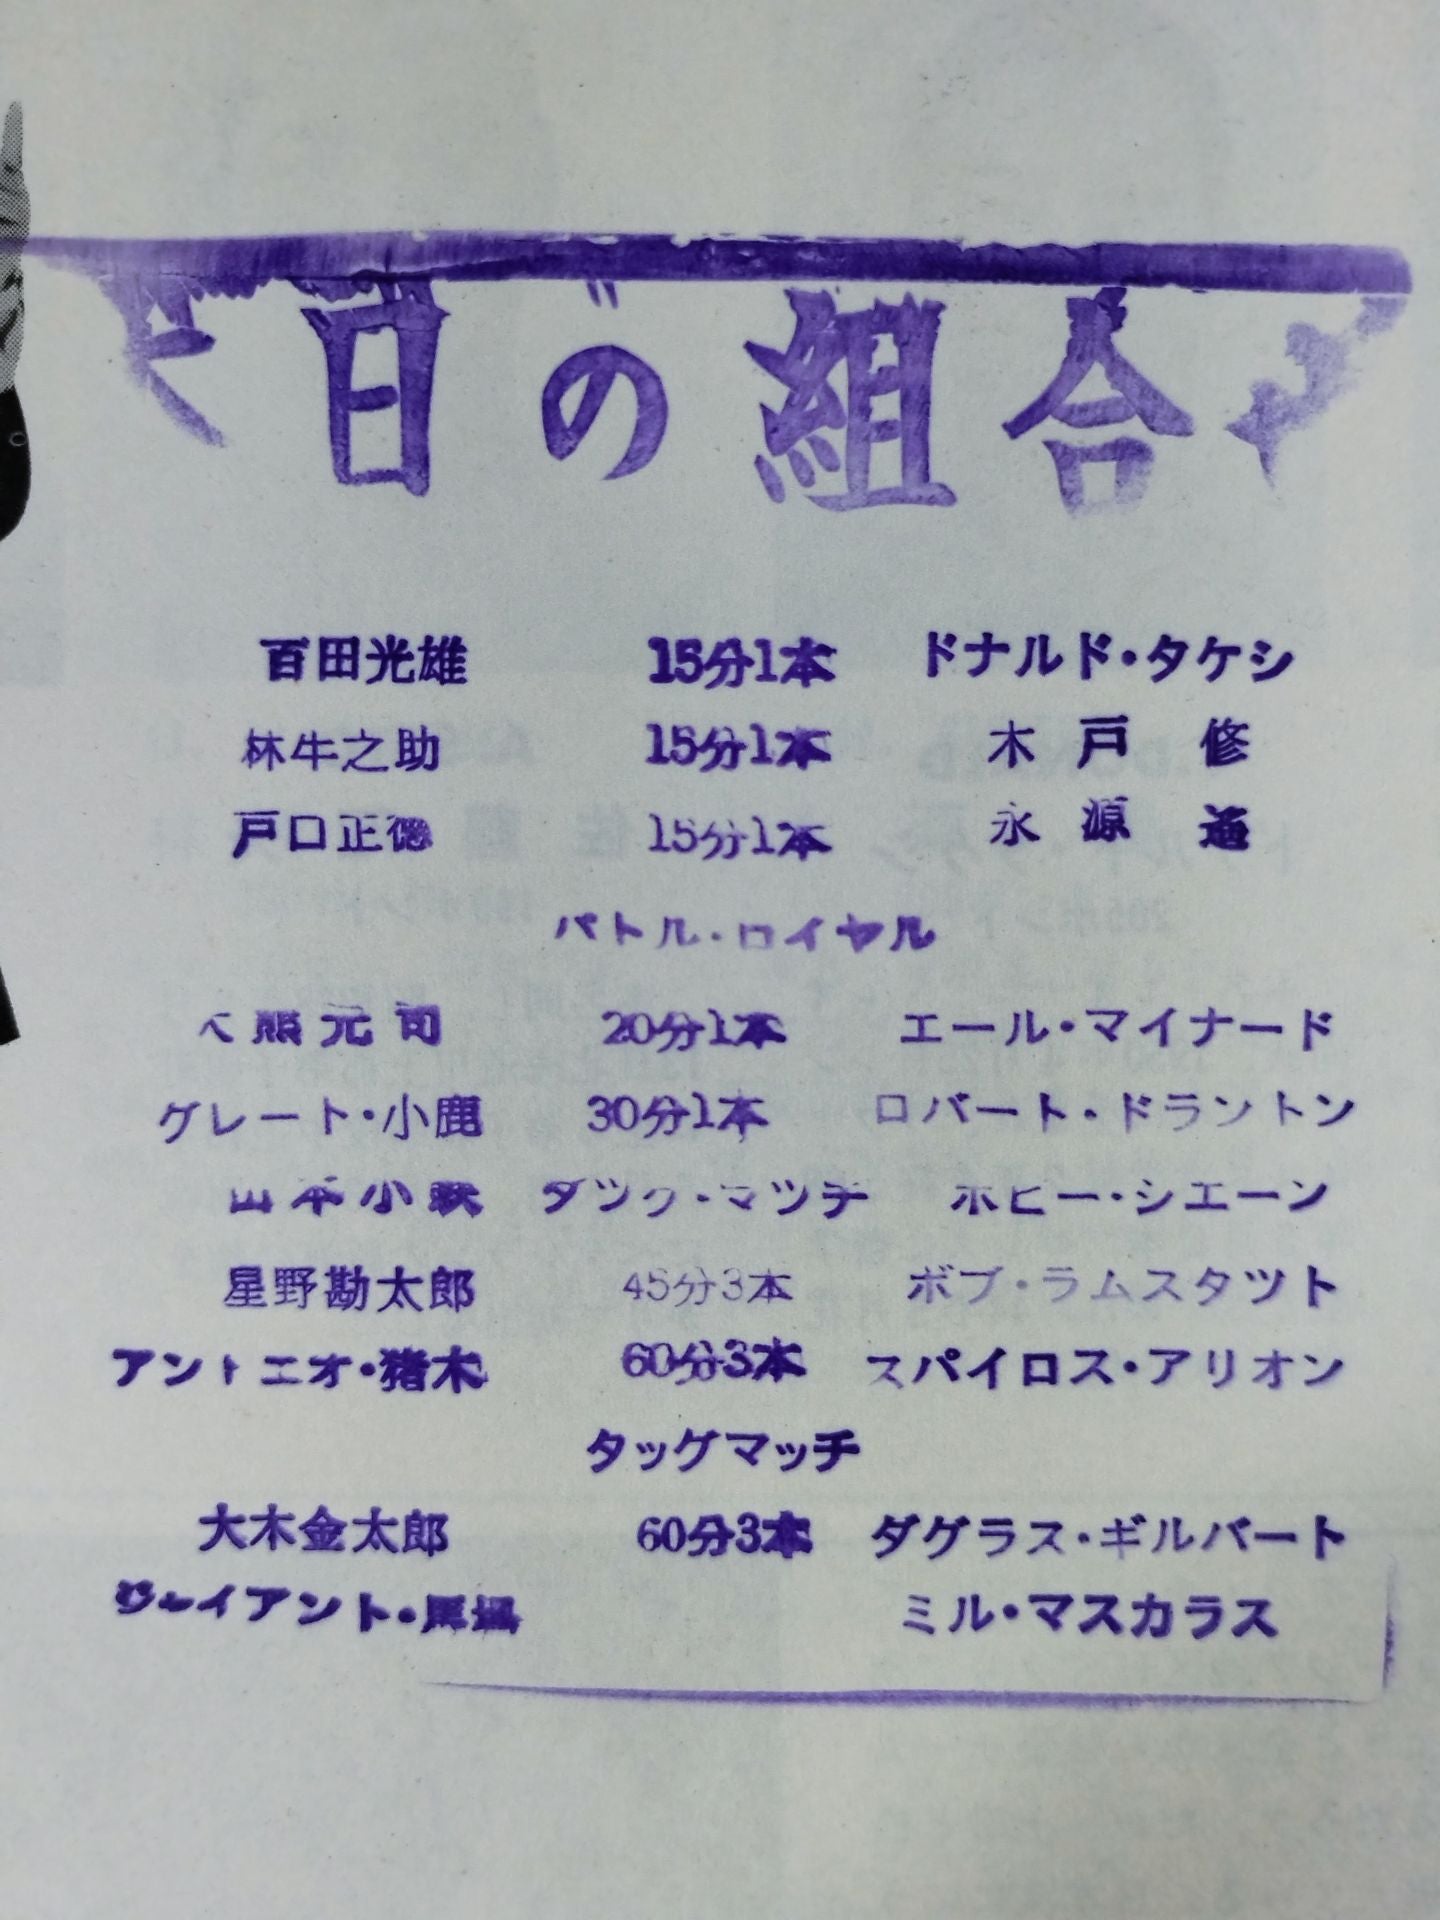 日の組合
百田光雄 15分1本 ドナルド・タケシ
林牛之助 15分1本 木戸修
戸口正徳 15分1本 永源遙
バトル・ロイヤル
大熊元司 20分1本 エール・マイナード
グレート・小鹿 30分1本 ロバート・ドラントン
山本小鉄 タッグ・マッチ ボビー・シエーン
星野勘太郎 45分3本 ボブ・ラムスタツト
アントニオ・猪木 60分3本 スパイロス・アリオン
タッグマッチ
大木金太郎 60分3本 ダグラス・ギルバート
ジャイアント・馬場 ミル・マスカラス